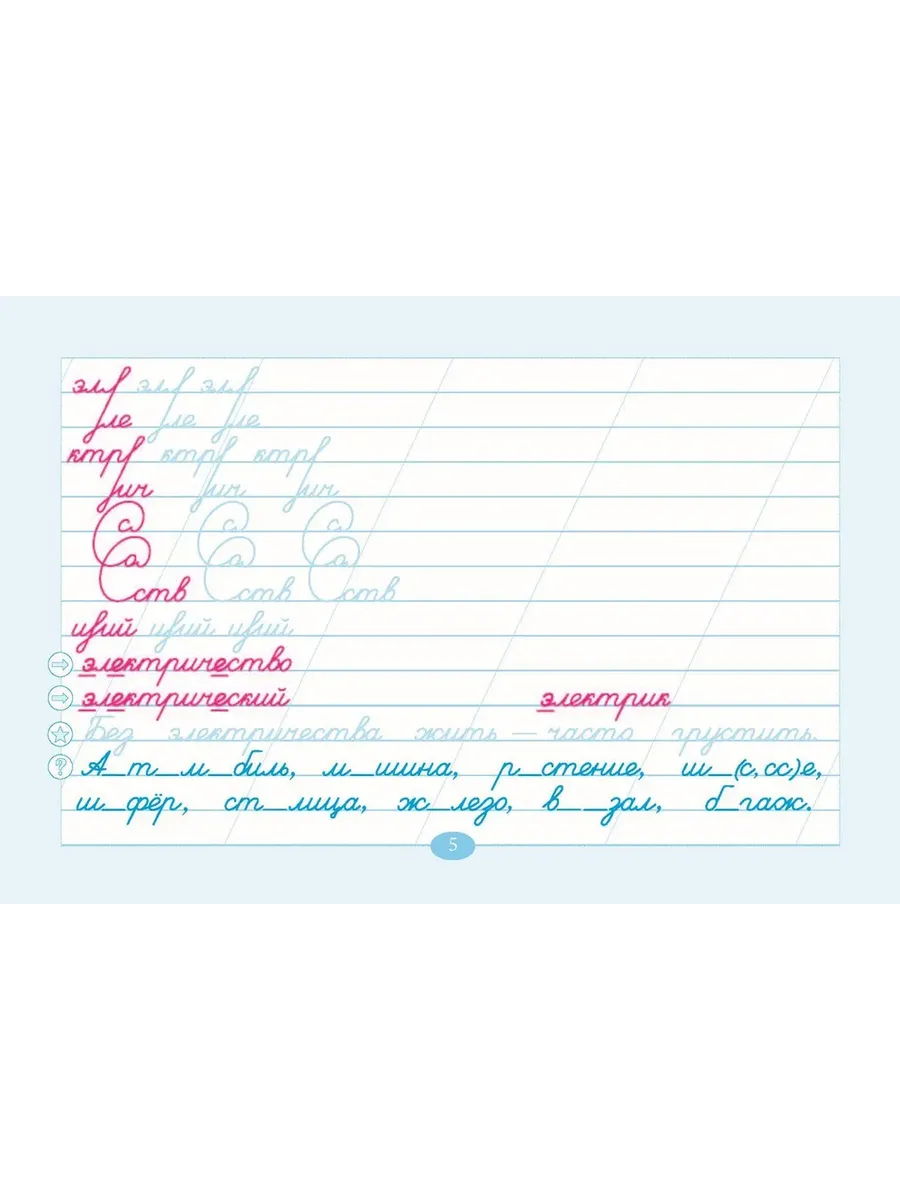 эл эл эл
ле ле ле
ктр ктр ктр
ич ич ич
с с с
а а а
ств ств ств
ций ций ций
электричество
электрический электрик
Без электричества жить — часто грустить.
? А_т_м_биль, м_шина, р_стение, ш_(с, сс)е,
ш_фёр, ст_лица, ж_лезо, в_ _зал, б_гаж.
5